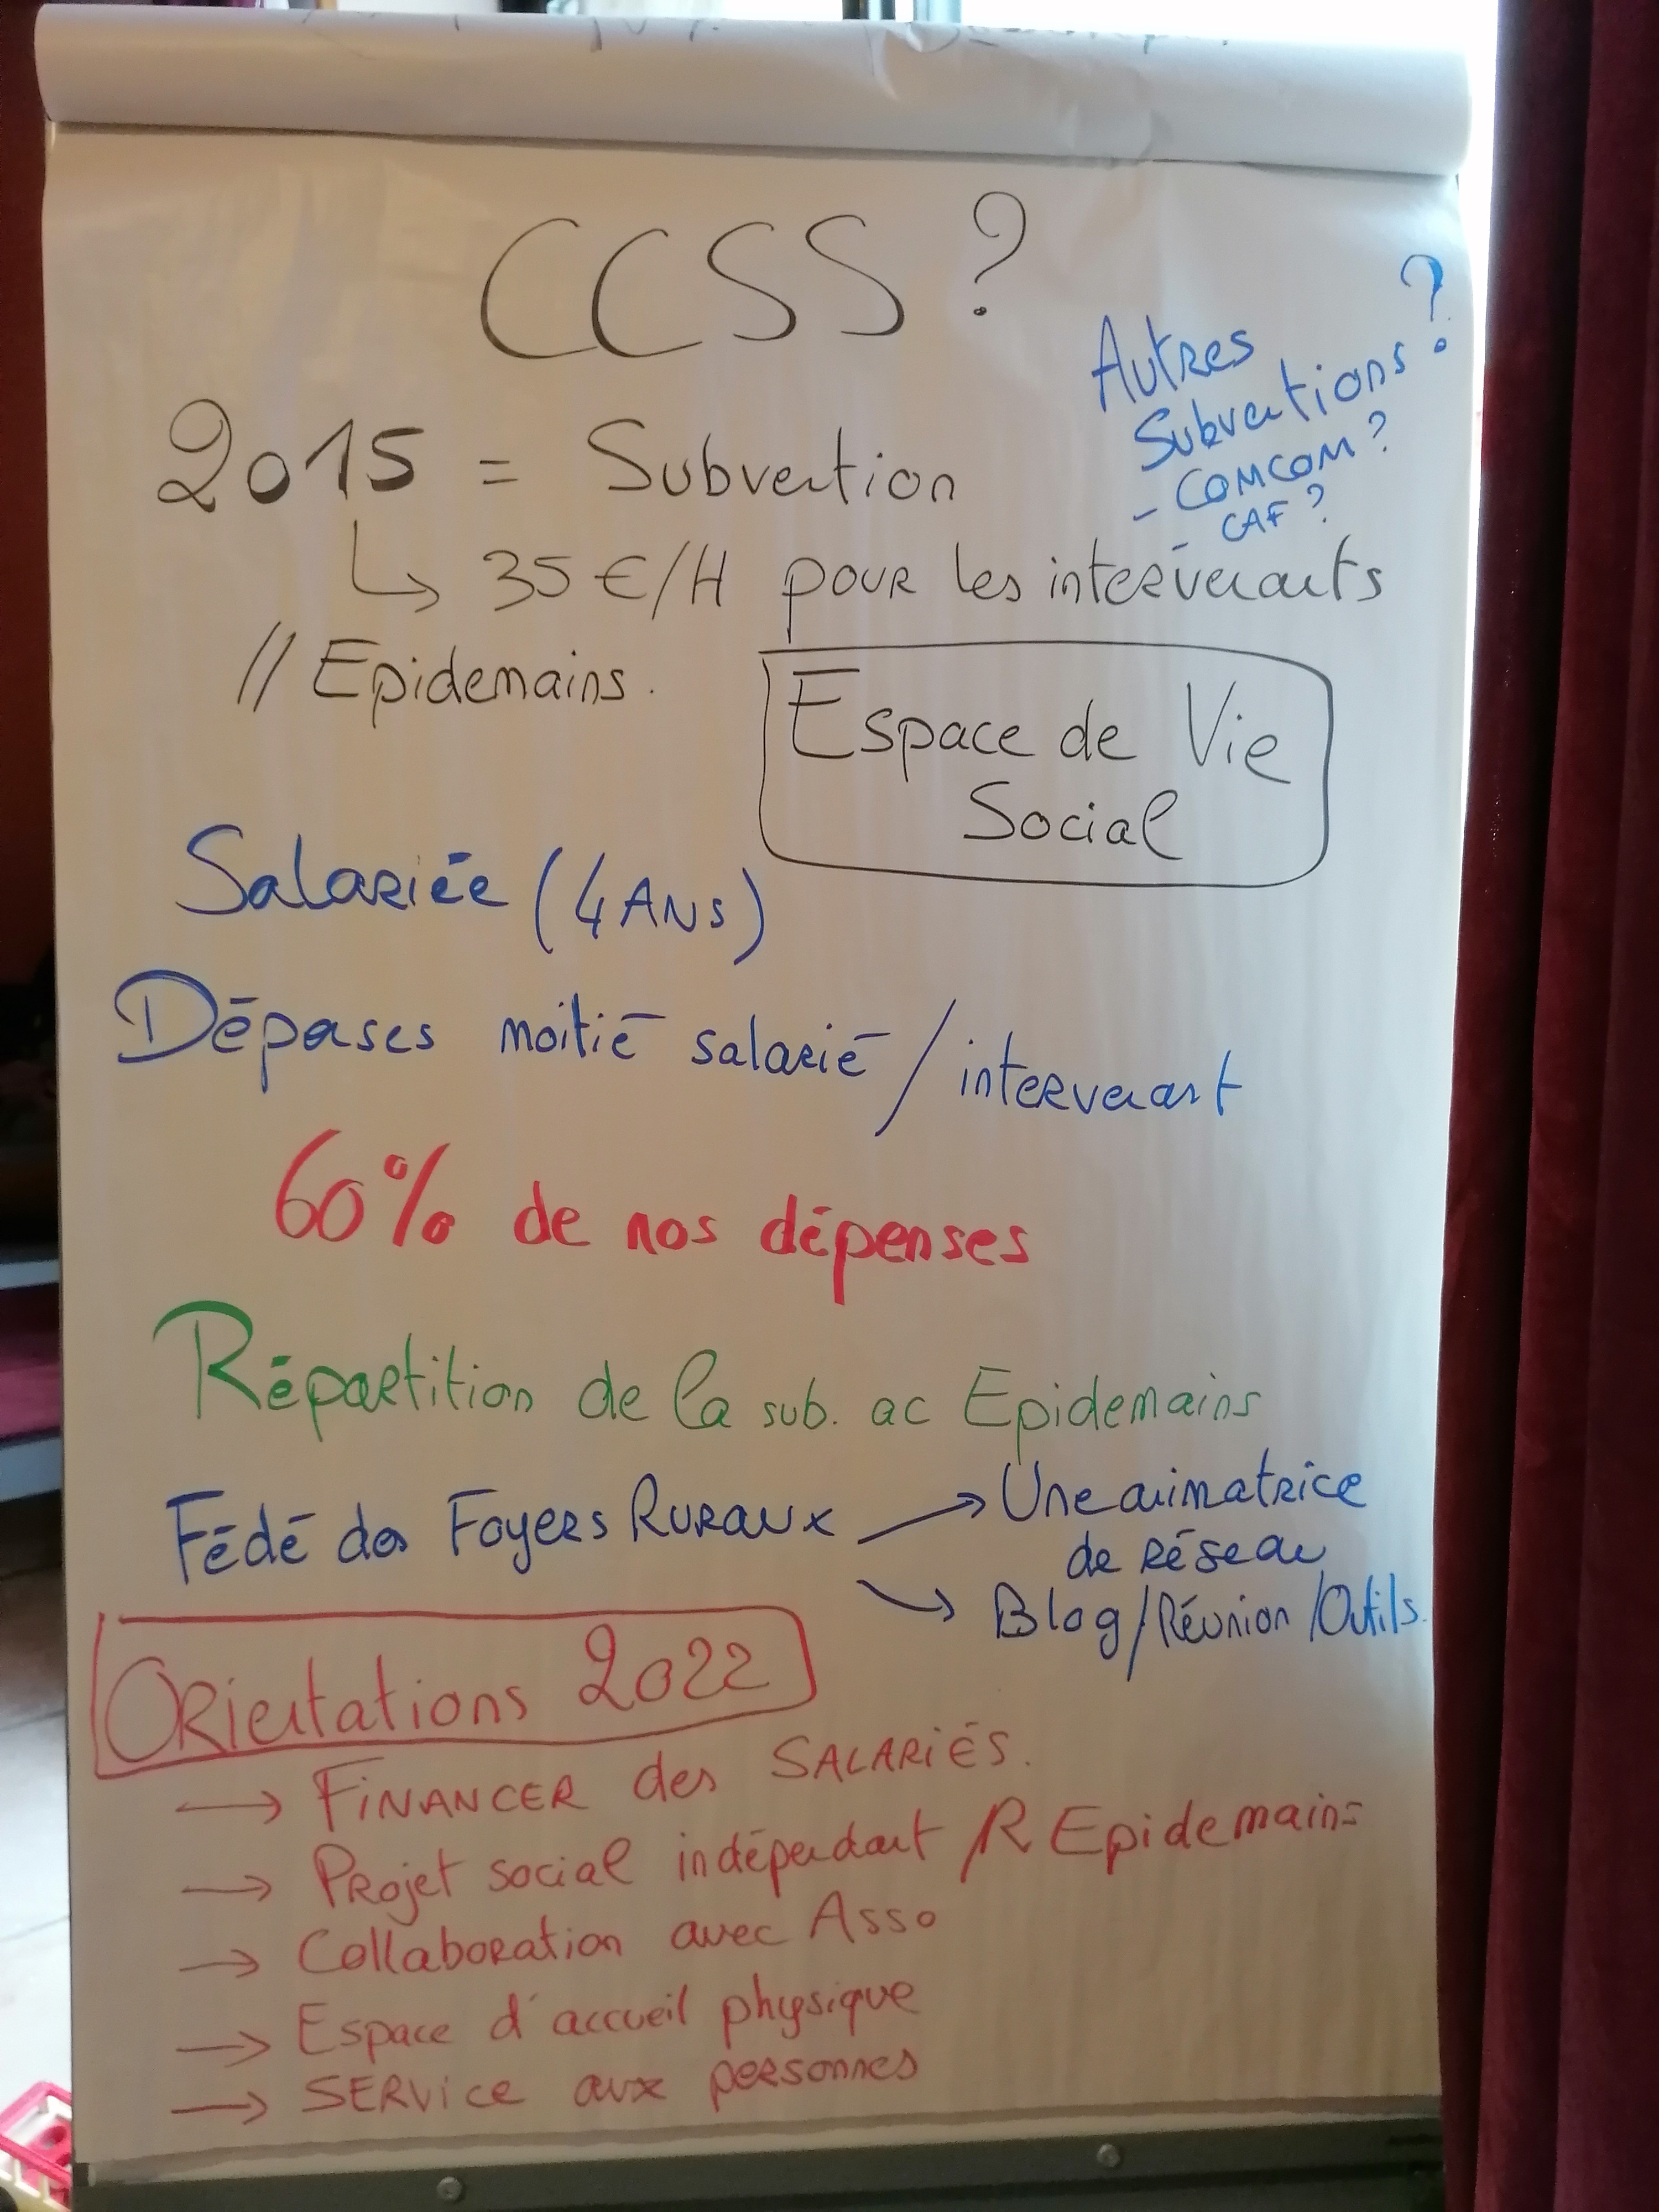 CCSS ?
Autres
Subventions ?
- COMCOM ?
- CAF ?
2015 = Subvention
↳ 35 €/H pour les intervenants
// Epidemains.
Espace de Vie
Social
Salariée (4 ANS)
Dépenses moitié salarié / intervenant
60% de nos dépenses
Répartition de la sub. ac Epidemains
Fédé des Foyers Ruraux → Une animatrice
de réseau
→ Blog / Réunion / Outils.
Orientations 2022
→ FINANCER des SALARIÉS.
→ Projet social indépendant /R Epidemains
→ Collaboration avec Asso
→ Espace d'accueil physique
→ SERVICE aux personnes